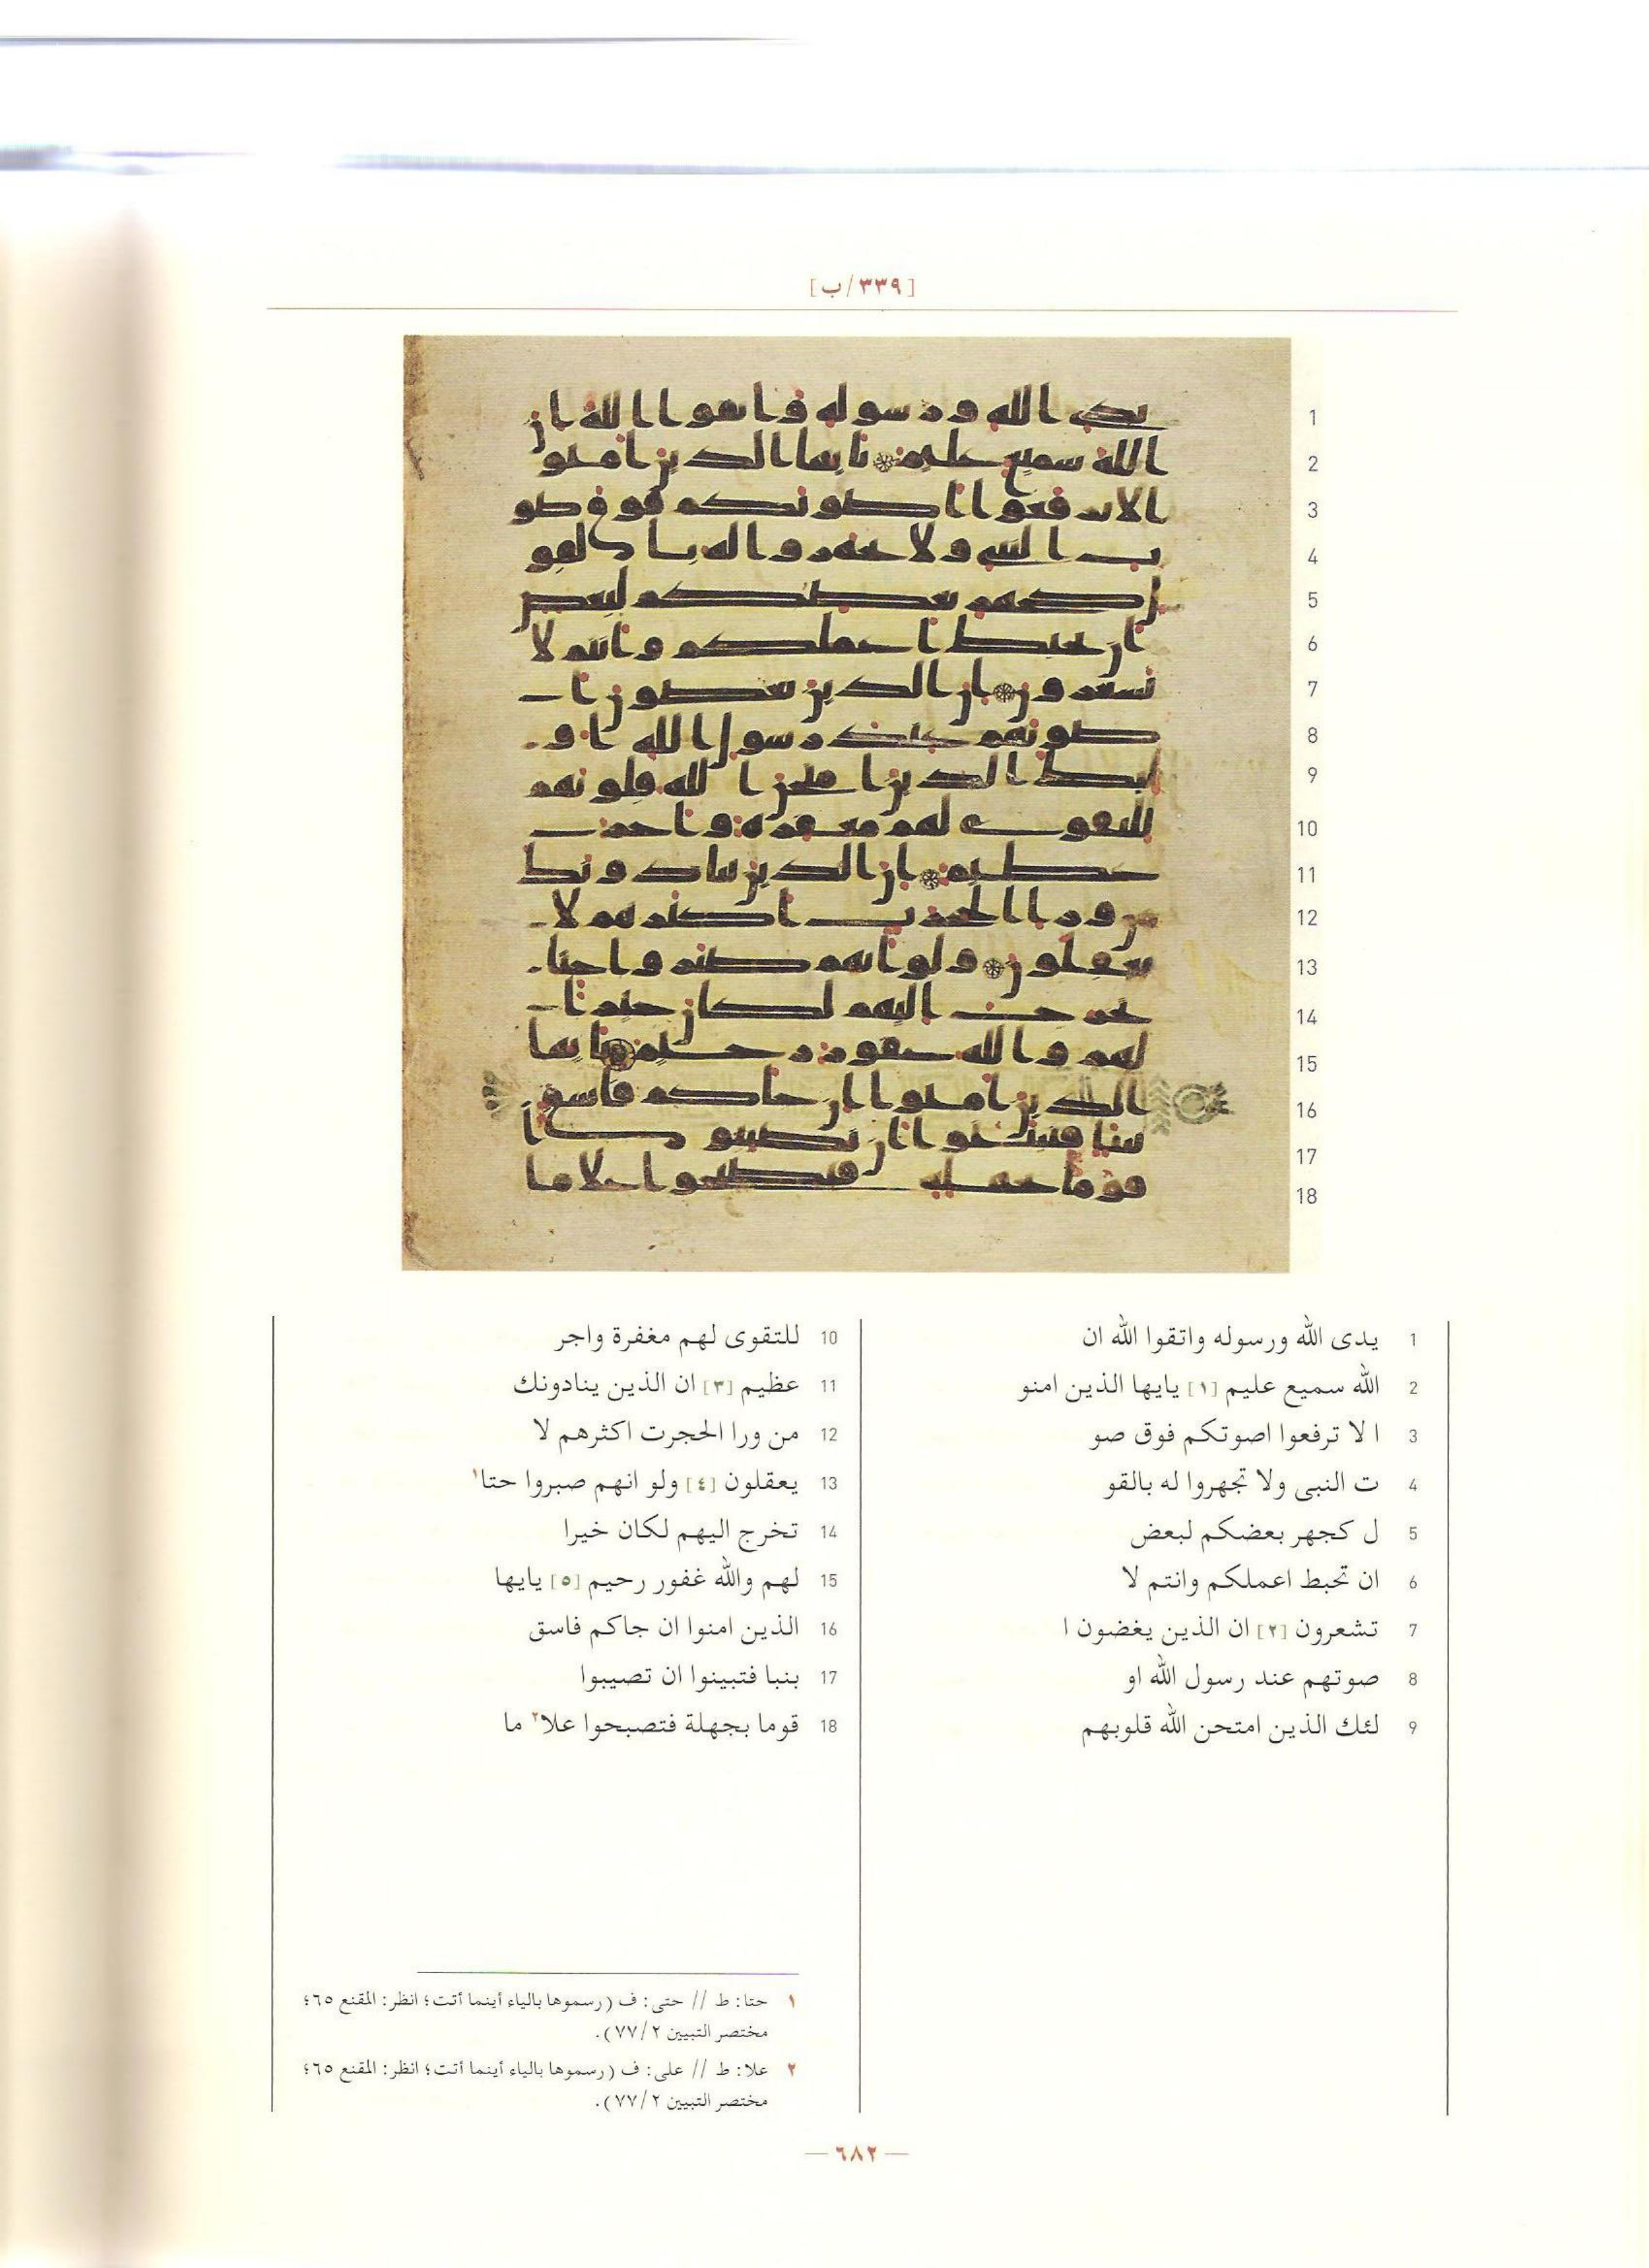 [٣٣٩/ب]
1 يدى الله ورسوله واتقوا الله ان
2 الله سميع عليم [١] يايها الذين امنو
3 ا لا ترفعوا اصوتكم فوق صو
4 ت النبى ولا تجهروا له بالقو
5 ل كجهر بعضكم لبعض
6 ان تحبط اعملكم وانتم لا
7 تشعرون [٢] ان الذين يغضون ا
8 صوتهم عند رسول الله او
9 لئك الذين امتحن الله قلوبهم
10 للتقوى لهم مغفرة واجر
11 عظيم [٣] ان الذين ينادونك
12 من ورا الحجرت اكثرهم لا
13 يعقلون [٤] ولو انهم صبروا حتا١
14 تخرج اليهم لكان خيرا
15 لهم والله غفور رحيم [٥] يايها
16 الذين امنوا ان جاكم فاسق
17 بنبا فتبينوا ان تصيبوا
18 قوما بجهلة فتصبحوا علا٢ ما
١ حتا: ط // حتى: ف (رسموها بالياء أينما أتت؛ انظر: المقنع ٦٥؛
مختصر التبيين ٧٧/٢).
٢ علا: ط // على: ف (رسموها بالياء أينما أتت؛ انظر: المقنع ٦٥؛
مختصر التبيين ٧٧/٢).
— ٦٨٢ —